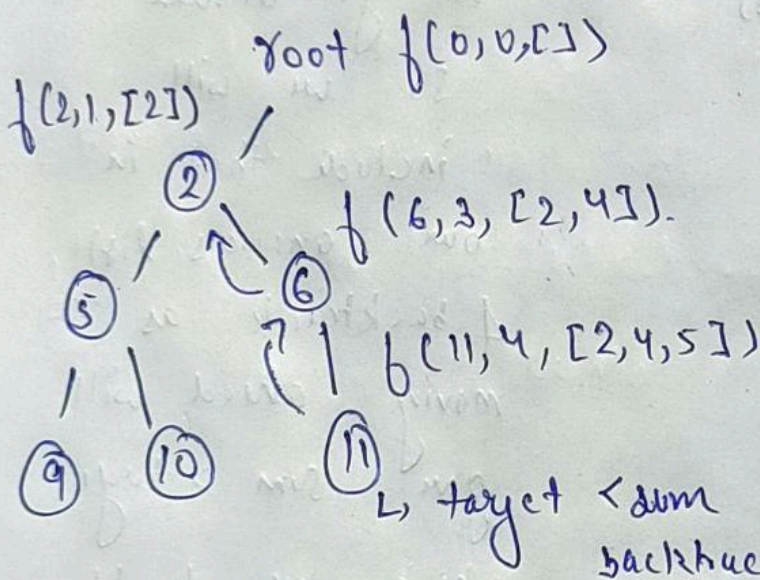 root f(0,0,[])
f(2,1,[2])
2
f(6,3,[2,4]).
5
6
f(11,4,[2,4,5])
9
10
11
↳ target <sum
backtrac